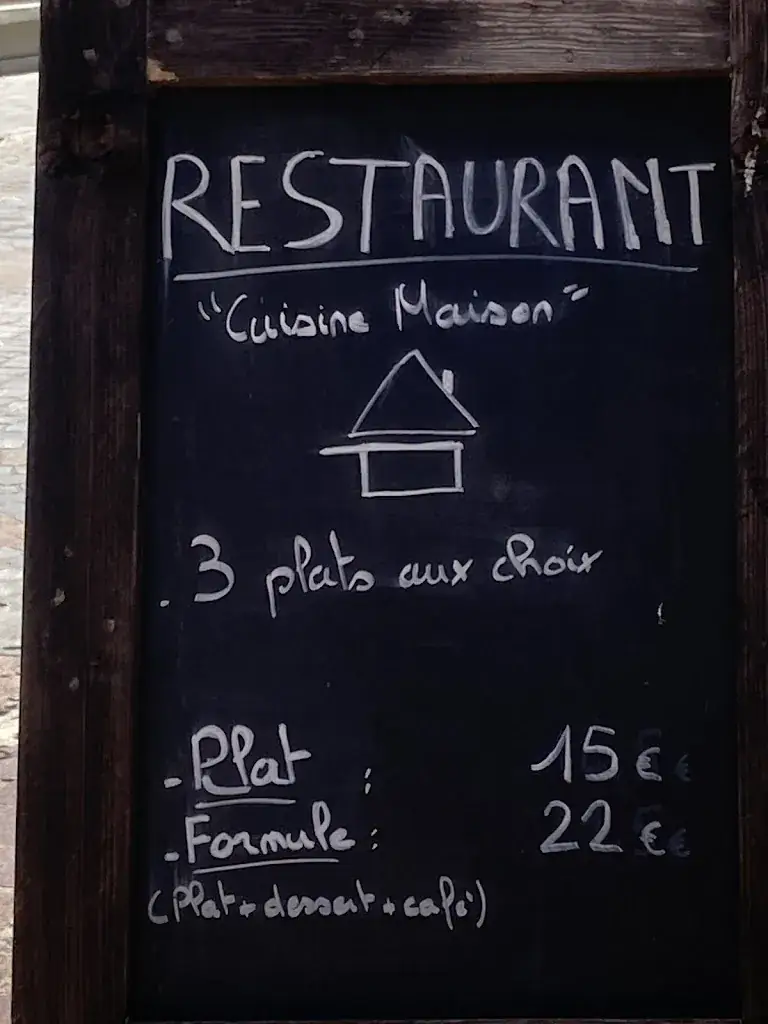 RESTAURANT
"Cuisine Maison"
. 3 plats aux choix
- Plat : 15 €
- Formule : 22 €
(Plat + dessert + café)